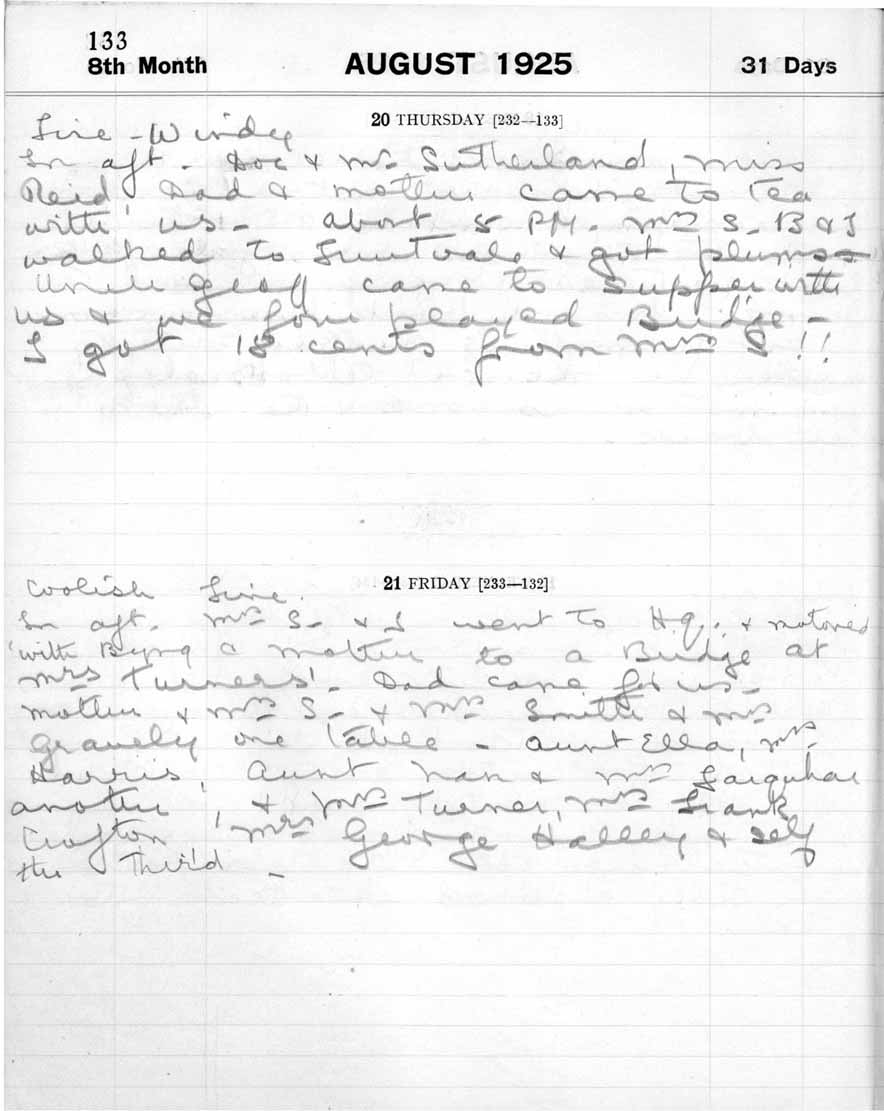 133
8th Month AUGUST 1925 31 Days
20 THURSDAY [232—133]
Fine - Windy
In aft. Doc & Mrs Sutherland, Miss
Reid, Dad & mother came to tea
with us - about 5 PM. Mrs S. B & I
walked to & got plums -
Uncle Geoff came to supper with
us & we four played Bridge -
I got 15 cents from Mrs S!!
21 FRIDAY [233—132]
Coolish Fine.
In aft. Mrs S. & I went to Hq. & motored
with Byng & mother to a Bridge at
Mrs Turners'. Dad came for us -
mother & Mrs S - & Mrs Smith & Mrs
Gravely one table - Aunt Ella, Mrs
Harris, Aunt Nan & Mrs Farquhar
another, & Mrs Turner, Mrs Frank
Crofton, Mrs George Halley & self
the third -